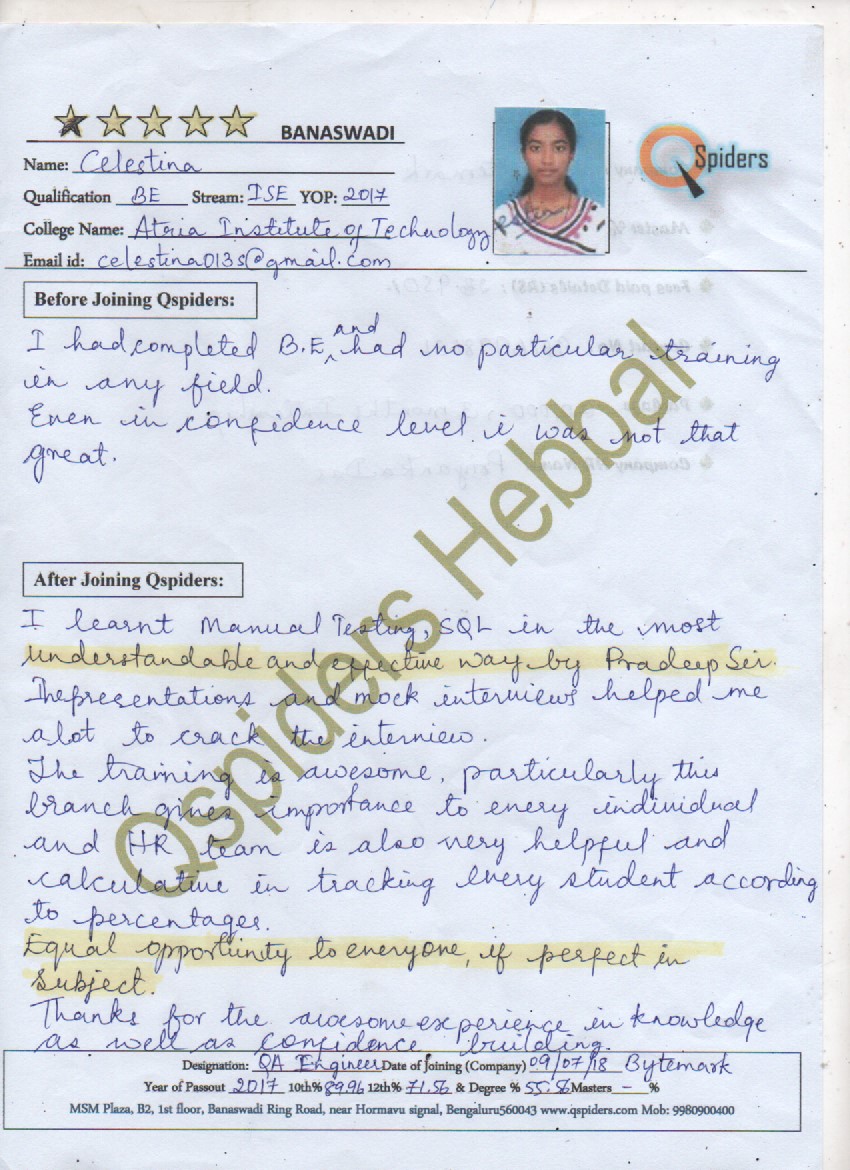 BANASWADI
Q Spiders
Name: Celestina
Qualification BE Stream: ISE YOP: 2017
College Name: Atria Institute of Technology
Email id: celestina013s@gmail.com
Before Joining Qspiders:
I had completed B.E, and had no particular training
in any field.
Even in confidence level i was not that
great.
After Joining Qspiders:
I learnt Manual Testing, SQL in the most
understandable and effective way by Pradeep Sir.
The presentations and mock interviews helped me
alot to crack the interview.
The training is awesome, particularly this
branch gives importance to every individual
and HR team is also very helpful and
calculative in tracking every student according
to percentages.
Equal opportunity to everyone, if perfect in
Subject.
Thanks for the awesome experience in knowledge
as well as confidence building.
Qspiders Hebbal
Designation: QA Engineer Date of Joining (Company) 09/07/18 Bytemark
Year of Passout 2017 10th% 89.96 12th% 71.56 & Degree % 55.% Masters - %
MSM Plaza, B2, 1st floor, Banaswadi Ring Road, near Hormavu signal, Bengaluru560043 www.qspiders.com Mob: 9980900400